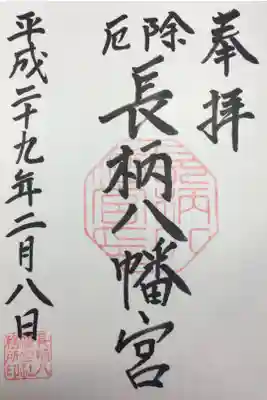 奉拝
厄除
長柄八幡宮
平成二十九年二月八日